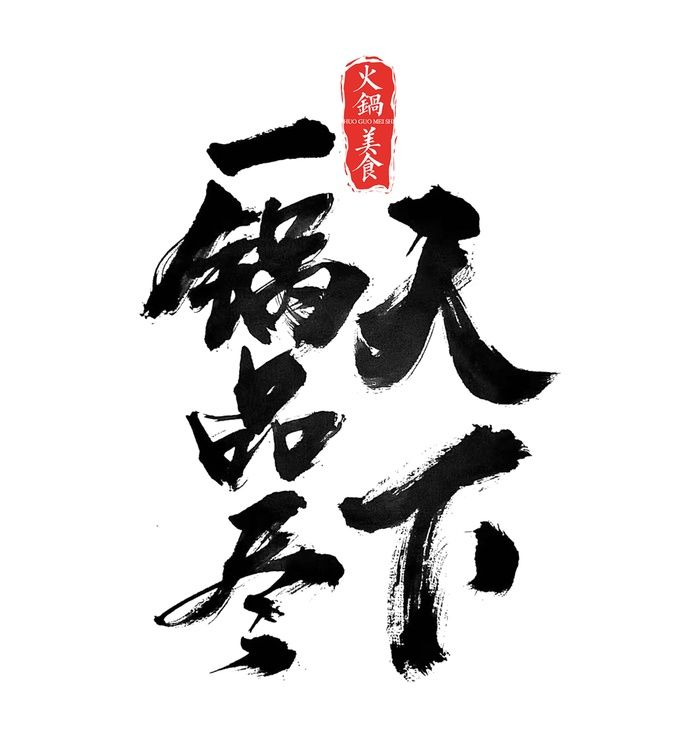 一锅品尽
天下
火鍋
HUO GUO MEI SHI
美食